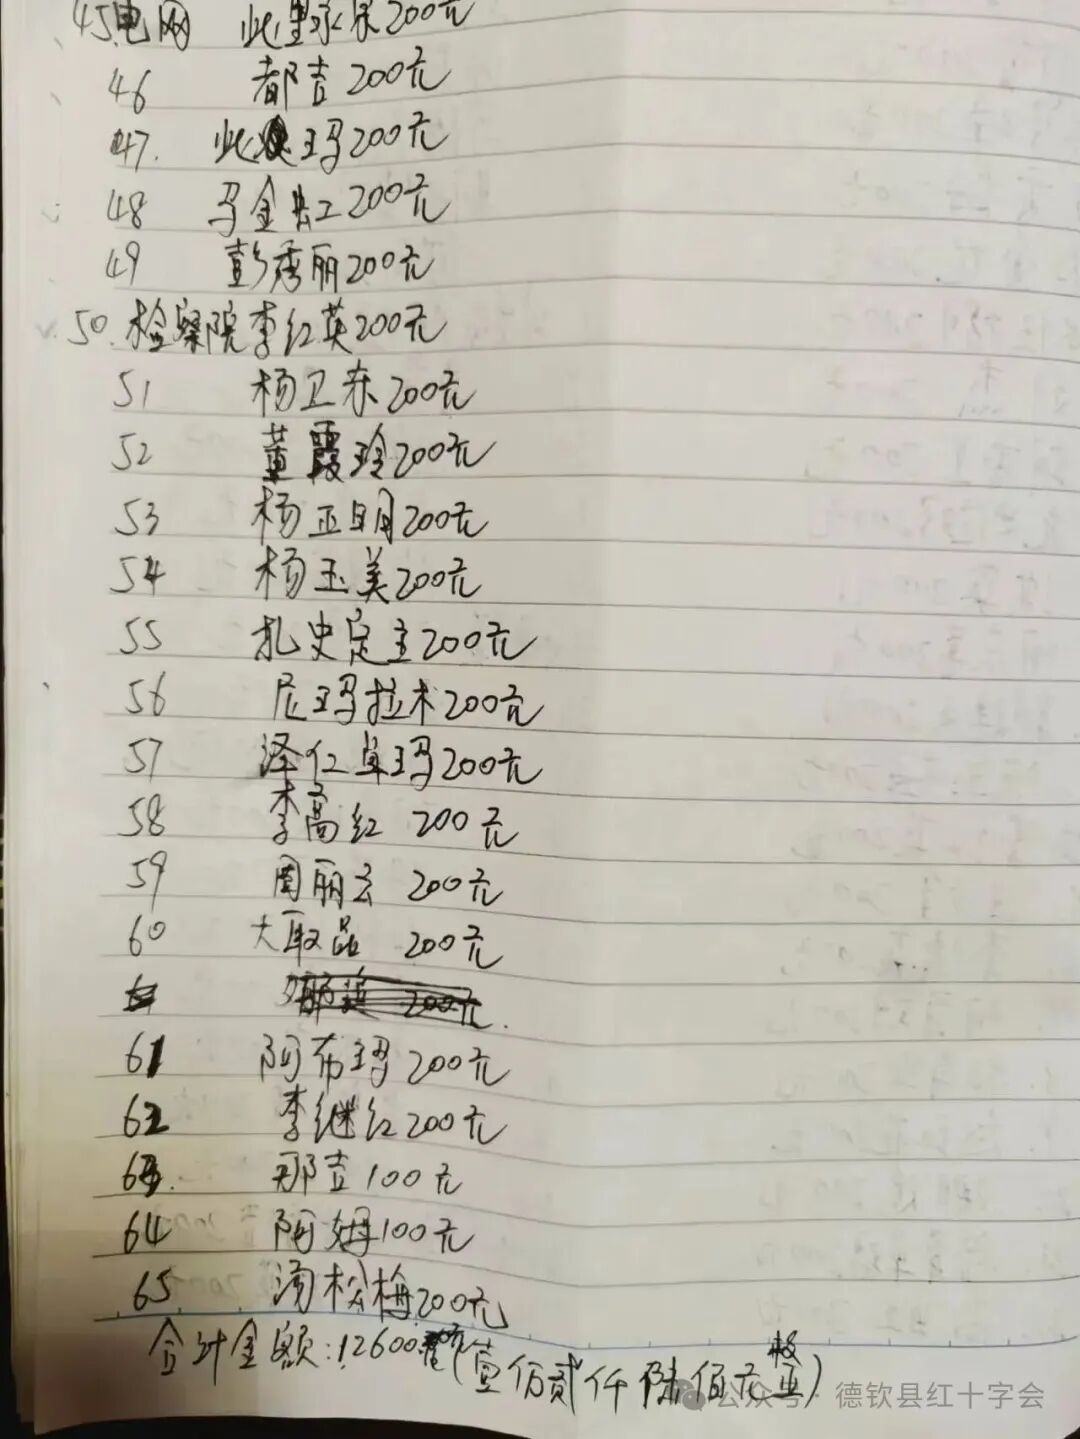 45.电网 此里永宗200元
46 都吉 200元
47. 此 玛200元
48 马金红200元
49 彭秀丽200元
50.检察院李红英200元
51 杨卫东200元
52 董霞玲200元
53 杨正明200元
54 杨玉美200元
55 扎史定主200元
56 尼玛拉木200元
57 泽仁卓玛200元
58 李高红 200元
59 周丽云 200元
60 大取品 200元
200元.
61 阿布玛200元
62 李继红200元
63. 那吉100元
64 阿姆100元
65 汤松梅200元
合计金额:12600元(壹万贰仟陆佰元整)
公众号·德钦县红十字会